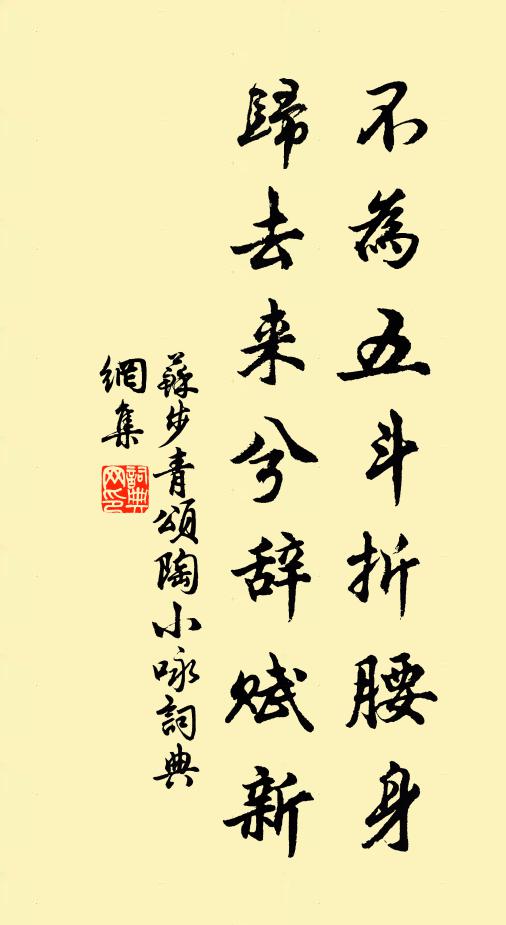 不為五斗折腰身
歸去来兮辞賦新
蘇步青頌陶小咏詞典
網集
詞典
网印